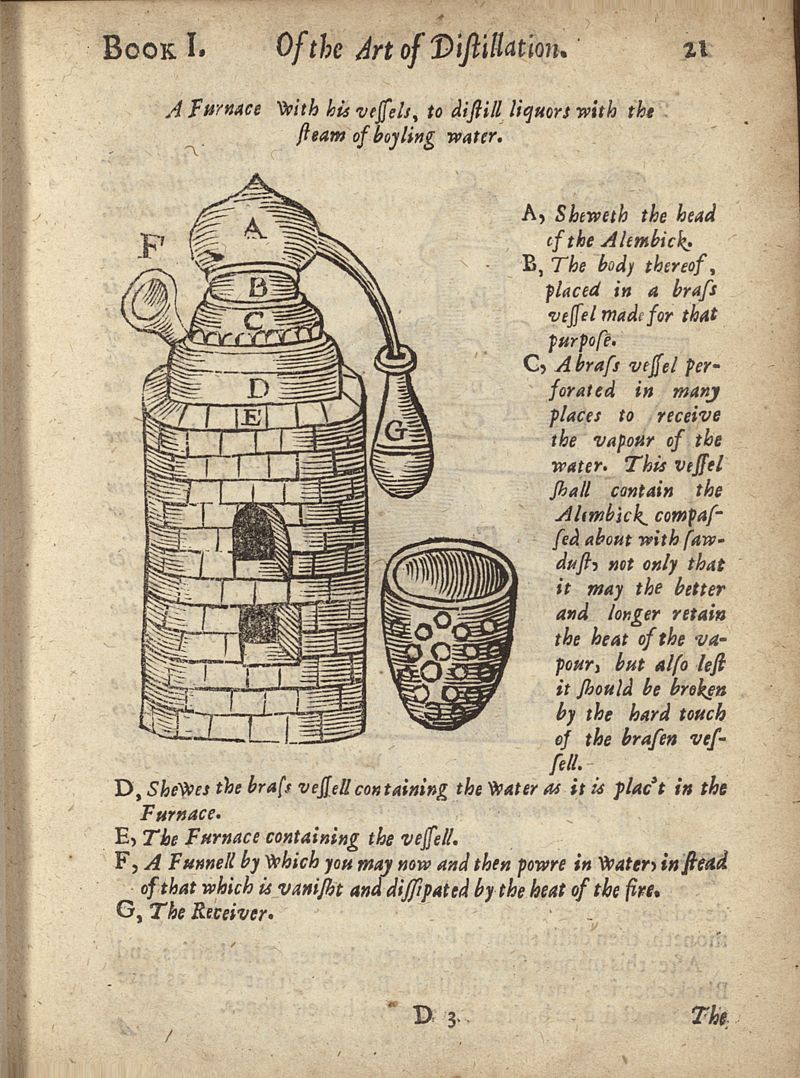 BOOK I. Of the Art of Diſtillation. 21
A Furnace With his veſſels, to diſtill liquors with the
ſteam of boyling water.
A
F
B
C
D
E
G
A, Sheweth the head
of the Alembick.
B, The body thereof,
placed in a braſs
veſſel made for that
purpoſe.
C, A braſs veſſel per-
forated in many
places to receive
the vapour of the
water. This veſſel
ſhall contain the
Alembick compaſ-
ſed about with ſaw-
duſt, not only that
it may the better
and longer retain
the heat of the va-
pour, but alſo leſt
it ſhould be broken
by the hard touch
of the braſen veſ-
ſell.
D, SheWes the braſs veſſell containing the Water as it is plac't in the
Furnace.
E, The Furnace containing the veſſell.
F, A Funnell by Which you may now and then powre in Water, in ſtead
of that which is vaniſht and diſſipated by the heat of the fire.
G, The Receiver.
D 3. The